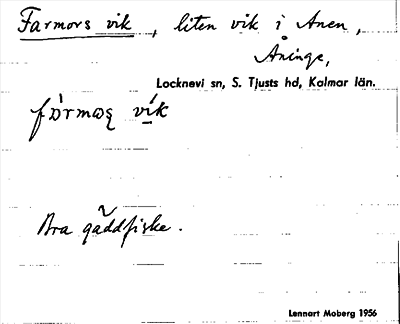 Farmors vik, liten vik i Anen,
Åninge,
Locknevi sn, S. Tjusts hd, Kalmar län.
Bra gäddfiske.
Lennart Moberg 1956